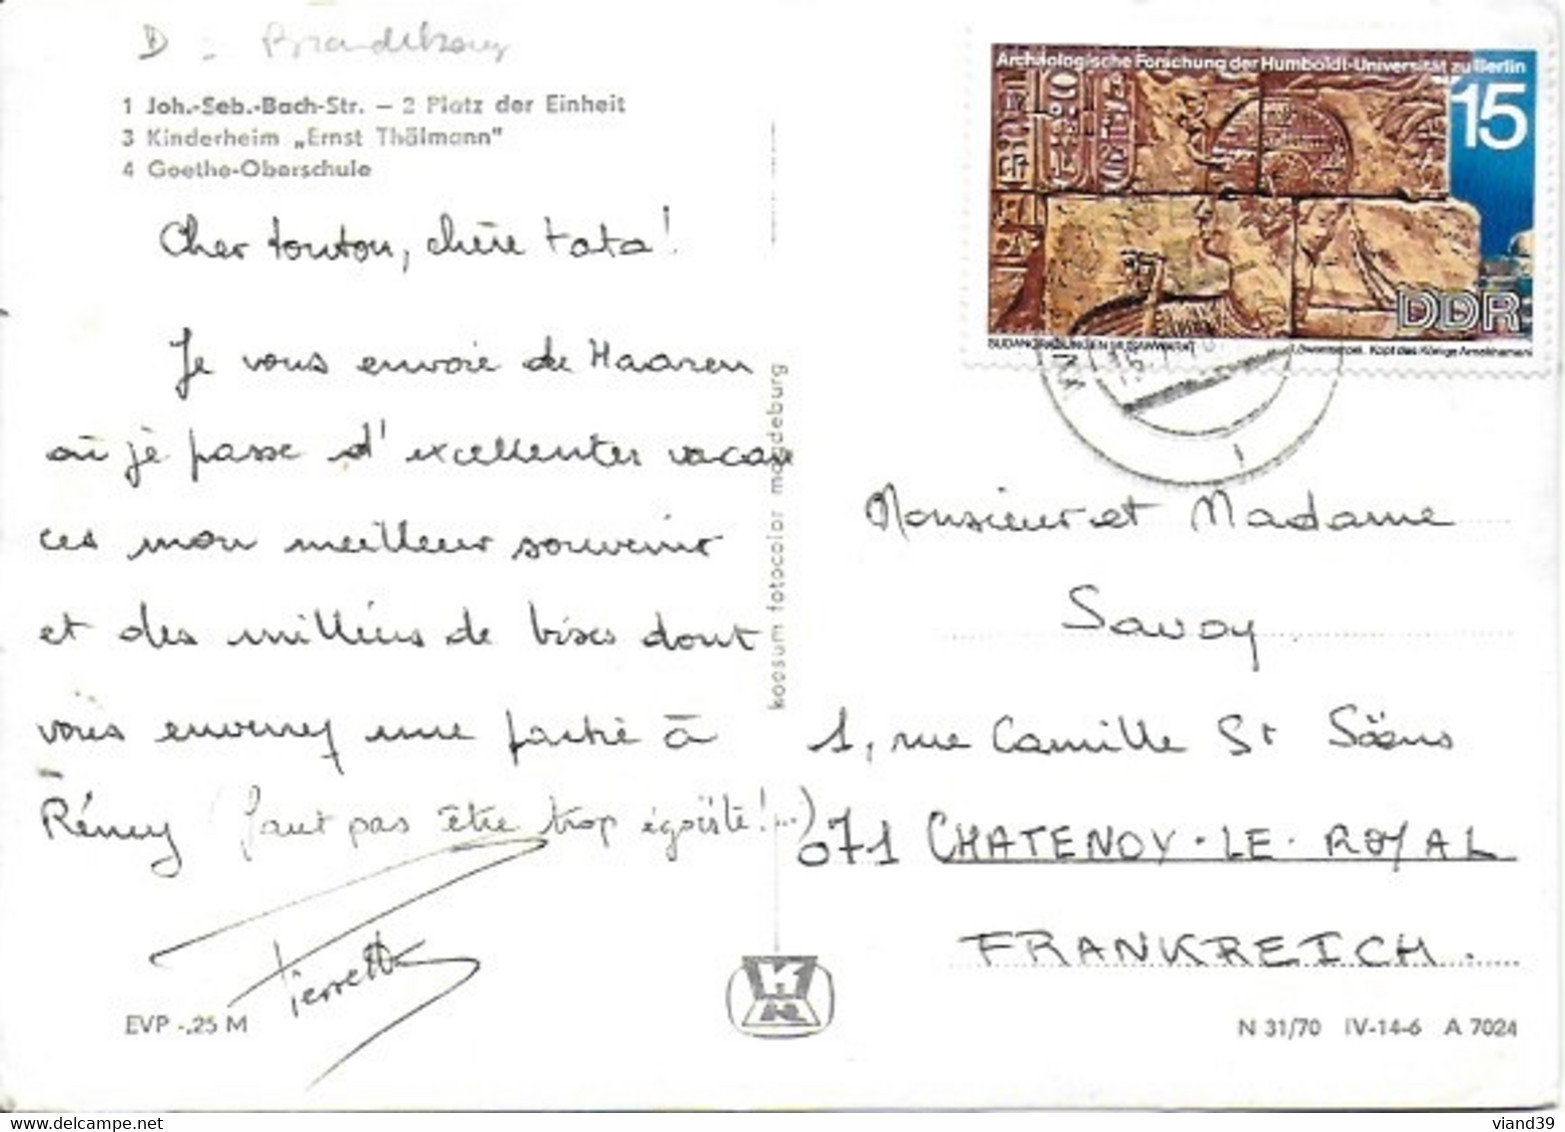 D :
1 Joh.-Seb.-Bach-Str. – 2 Platz der Einheit
3 Kinderheim „Ernst Thälmann"
4 Goethe-Oberschule
Cher tonton, chère tata !
Je vous envoie de Haaren
où je passe d'excellentes vacan
ces mon meilleur souvenir
et des milliers de bises dont
vous enverrez une partie à
Rémy (faut pas être trop égoïste !...)
Pierrette
EVP -,25 M
koosum fotocolor magdeburg
Archäologische Forschung der Humboldt-Universität zu Berlin
15
DDR
SUDANGRABUNGEN MUSAWWARAT
Löwentempel. Kopf des Königs Arnekhamani
Monsieur et Madame
Savoy
1, rue Camille St Säens
071 CHATENOY-LE-ROYAL
FRANKREICH.
N 31/70 IV-14-6 A 7024
viand39